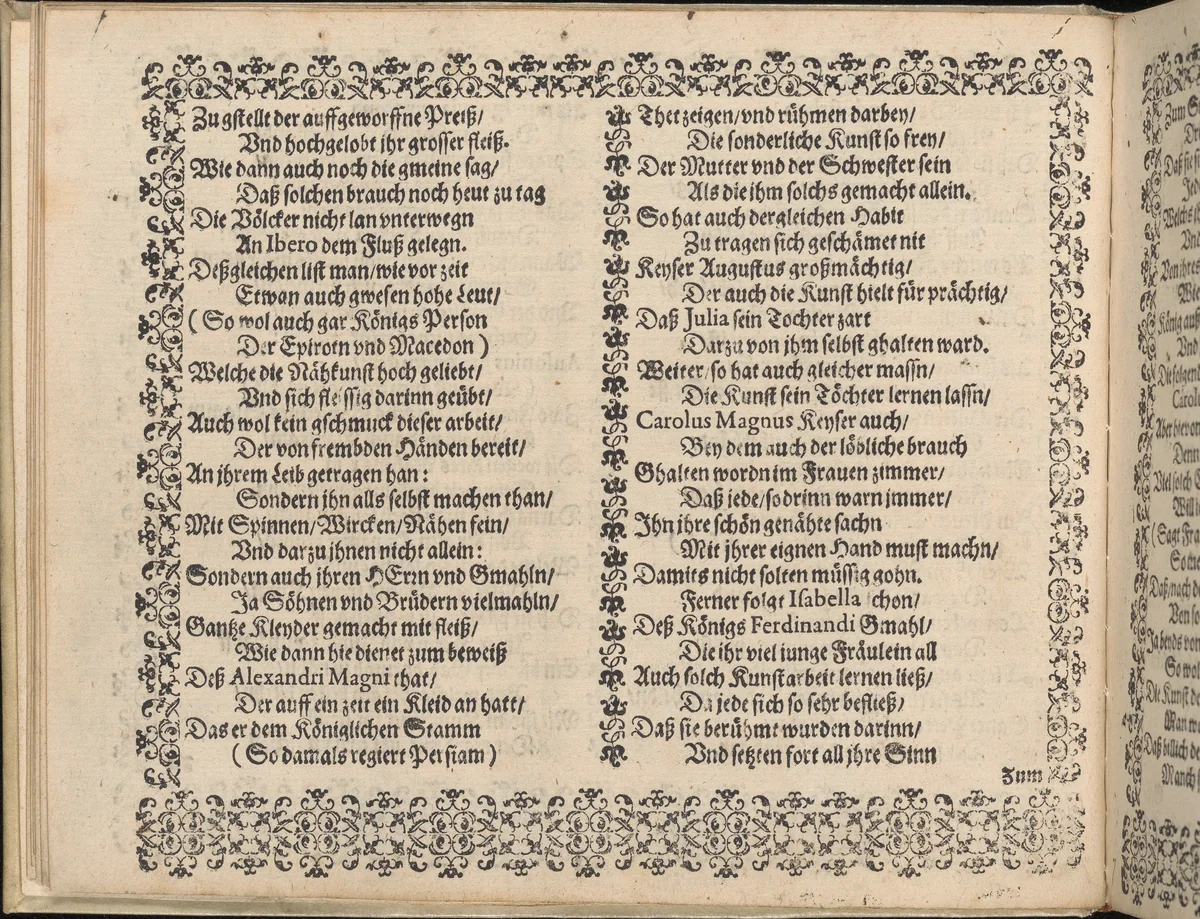 Zu gstellt der auffgeworffne Preiß/
Vnd hochgelobt jhr grosser fleiß.
Wie dann auch noch die gmeine sag/
Daß solchen brauch noch heut zu tag
Die Völcker nicht lan vnterwegn
An Ibero dem Fluß gelegn.
Deßgleichen list man/wie vor zeit
Etwan auch gwesen hohe Leut/
(So wol auch gar Königs Person
Der Epirotn vnd Macedon)
Welche die Nähkunst hoch geliebt/
Vnd sich fleissig darinn geübt/
Auch wol kein gschmuck dieser arbeit/
Der von frembden Händen bereit/
An jhrem Leib getragen han:
Sondern jhn alls selbst machen than/
Mit Spinnen/Wircken/Nähen fein/
Vnd darzu jhnen nicht allein:
Sondern auch jhren HErrn vnd Gmahln/
Ja Söhnen vnd Brüdern vielmahln/
Gantze Kleyder gemacht mit fleiß/
Wie dann hie dienet zum beweiß
Deß Alexandri Magni that/
Der auff ein zeit ein Kleid an hatt/
Das er dem Königlichen Stamm
(So damals regiert Persiam)
Thet zeigen/vnd rühmen darbey/
Die sonderliche Kunst so frey/
Der Mutter vnd der Schwester sein
Als die jhm solchs gemacht allein.
So hat auch dergleichen Habit
Zu tragen sich geschämet nit
Keyser Augustus großmächtig/
Der auch die Kunst hielt für prächtig/
Daß Julia sein Tochter zart
Darzu von jhm selbst ghalten ward.
Weiter/so hat auch gleicher massn/
Die Kunst sein Töchter lernen lassn/
Carolus Magnus Keyser auch/
Bey dem auch der löbliche brauch
Ghalten wordn im Frauen zimmer/
Daß jede/so drinn warn jmmer/
Ihn jhre schön genähte sachn
Mit jhrer eignen Hand must machn/
Damits nicht solten müssig gohn.
Ferner folgt Isabella schon/
Deß Königs Ferdinandi Gmahl/
Die ihr viel junge Fräulein all
Auch solch Kunstarbeit lernen ließ/
Da jede sich so sehr befließ/
Daß sie berühmt wurden darinn/
Vnd setzten fort all jhre Sinn
Zum